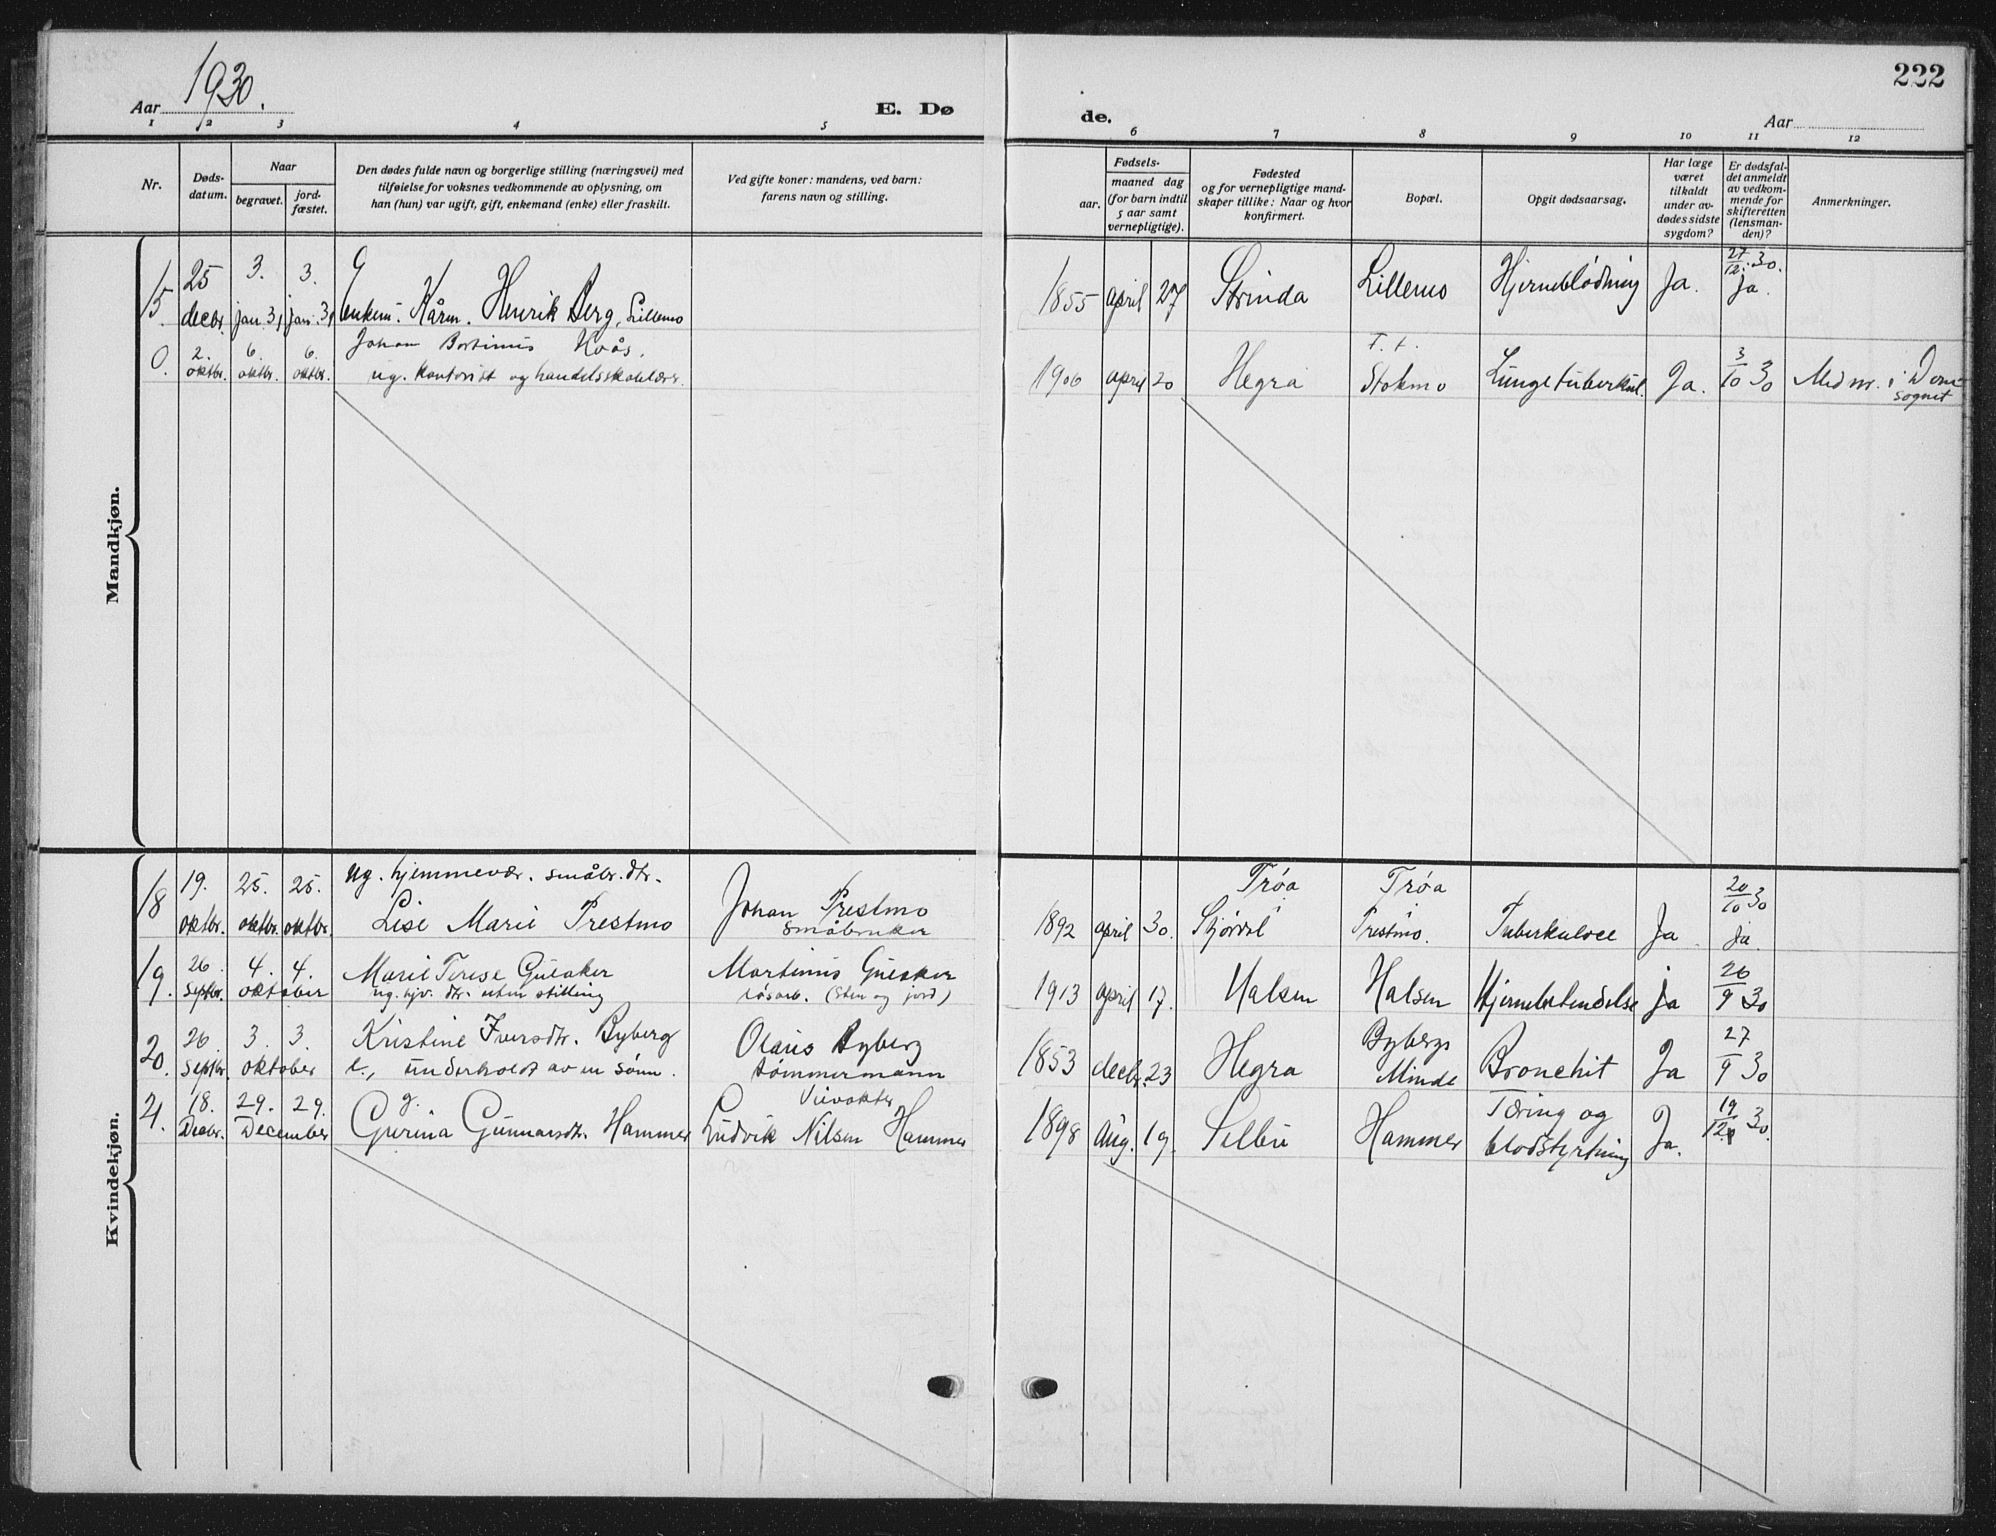 222
Aar 1930.
E. Dø
de.
Aar
1 2 3 4 5 6 7 8 9 10 11 12
Nr.
Døds-
datum.
Naar
begravet.
jord-
fæstet.
Den dødes fulde navn og borgerlige stilling (næringsvei) med
tilføielse for voksnes vedkommende av oplysning, om
han (hun) var ugift, gift, enkemand (enke) eller fraskilt.
Ved gifte koner: mandens, ved barn:
farens navn og stilling.
Fødsels-
aar.
maaned dag
(for barn indtil
5 aar samt
vernepligtige).
Fødested
og for vernepligtige mand-
skaper tillike: Naar og hvor
konfirmert.
Bopæl.
Opgit dødsaarsag.
Har læge
været
tilkaldt
under av-
dødes sidste
sygdom?
Er dødsfal-
det anmeldt
av vedkom-
mende for
skifteretten
(lensman-
den)?
Anmerkninger.
Mandkjøn.
15 25 3. 3.
decbr. jan. 31 jan. 31 Enkem. Kårm. Henrik Berg, Lillemo
1855 april 27 Strinda Lillemo Hjerneblödning Ja. 27/12.30.
Ja.
0. 2. 6. 6. Johan Bortinus Koås.
oktbr. oktbr. oktbr. ug. kontorist og handelsskolelærer
F. t.
1906 april 20 Hegra Stokmo Lungetuberkul. Ja. 3/10 30 Med nr. i Dom-
sognet
Kvindekjøn.
18 19. 25. 25. ug. hjemmevær. småbr. dtr.
oktbr. oktbr. oktbr. Lise Marie Prestmo Johan Prestmo
småbruker
Trøa Trøa 20/10 30
1892 april 30. Stjørdal Prestmo. Tuberkulose Ja Ja.
19. 26. 4. 4. Marie Terese Gulaker Martinus Gulaker
septbr. oktober ug. hjv. dtr. uten stilling løsarb. (sten og jord)
1913 april 17. Halsen Halsen Hjernebetendelse ja 26/9 30
20. 26. 3. 3. Kristine Iversdtr. Byberg Olaus Byberg
septbr. oktober e., underholdt av en sønn. tømmermann
1853 decbr. 23 Hegra Bybergs
Minde Bronchit Ja 27/9 30
21. 18. 29. 29. g. Veivokter
Decbr. December Gurina Gunnarsdtr. Hammer Ludvik Nilsen Hammer
1898 Aug. 19. Selbu Hammer Tæring og
blodstyrtning Ja. 19/12 30.